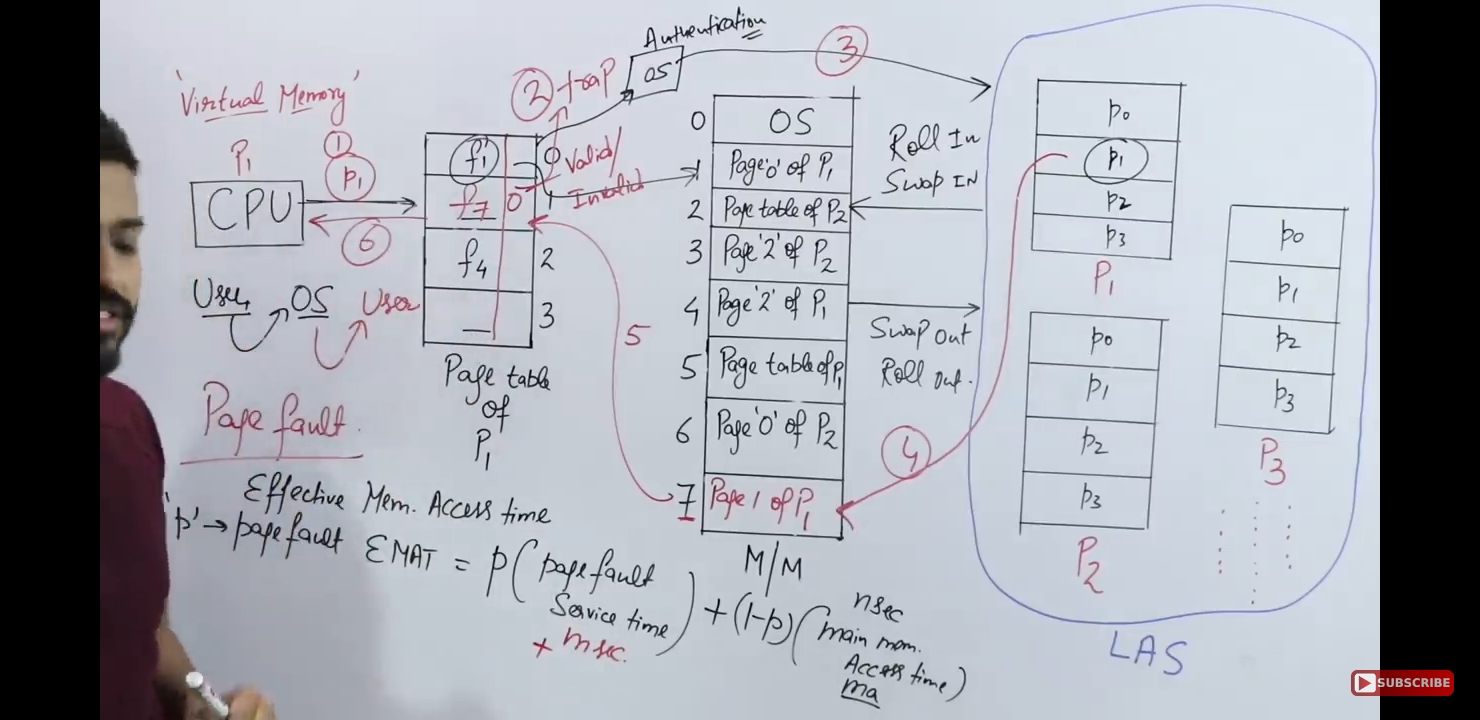 'Virtual Memory'
P1
1
p1
CPU
6
User OS User
Page fault.
Authentication
OS
2 trap
3
f1 0 Valid/
1 Invalid
f7 0
f4 2
_ 3
Page table
of
P1
5
0 OS
1 Page '0' of P1
2 Page table of P2
3 Page '2' of P2
4 Page '2' of P1
5 Page table of P1
6 Page '0' of P2
7 Page 1 of P1
M/M
Roll In
Swap IN
Swap Out
Roll out.
4
p0
p1
p2
p3
P1
p0
p1
p2
p3
P2
p0
p1
p2
p3
P3
LAS
Effective Mem. Access time
'p' → page fault
EMAT = p(page fault
Service time)
+ msec.
+ (1-p)(main mem.
nsec
Access time)
ma
SUBSCRIBE